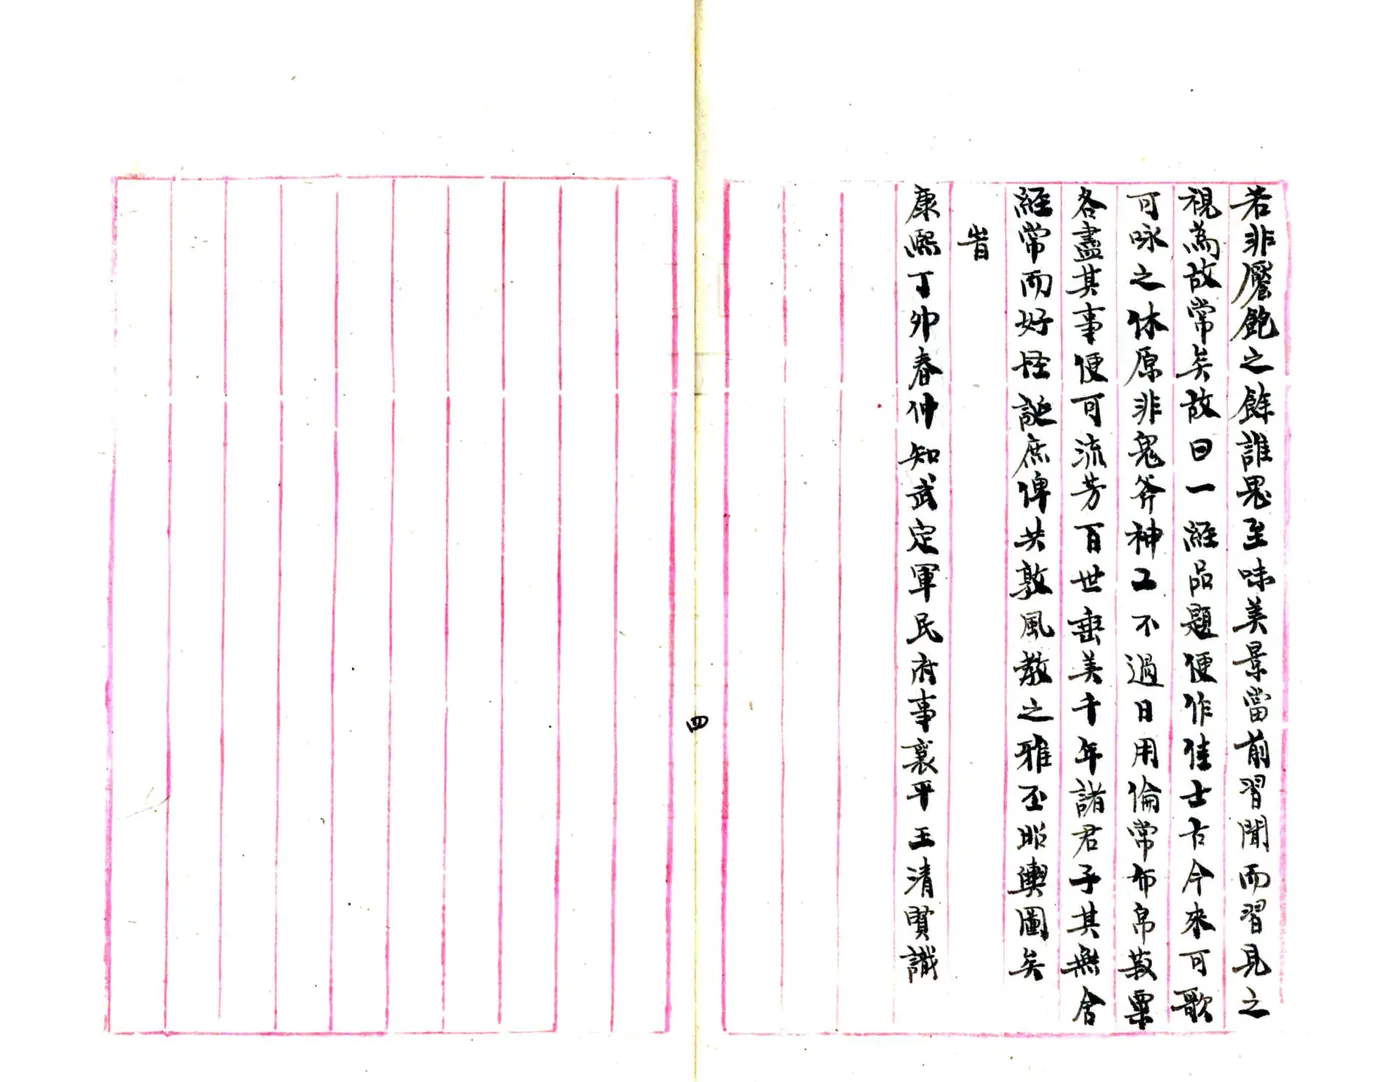 若非饜飽之餘誰至味美景當前習聞而習見之
視為故常矣故曰一經品題便作佳士古今來可歌
可咏之休原非鬼斧神工不過日用倫常布帛菽粟
各盡其事便可流芳百世垂美千年諸君子其無舍
經常而好怪誕庶俾共敦風教之雅丕昭輿圖矣
旹
康熙丁卯春仲知武定軍民府事襄平王清賢識
四